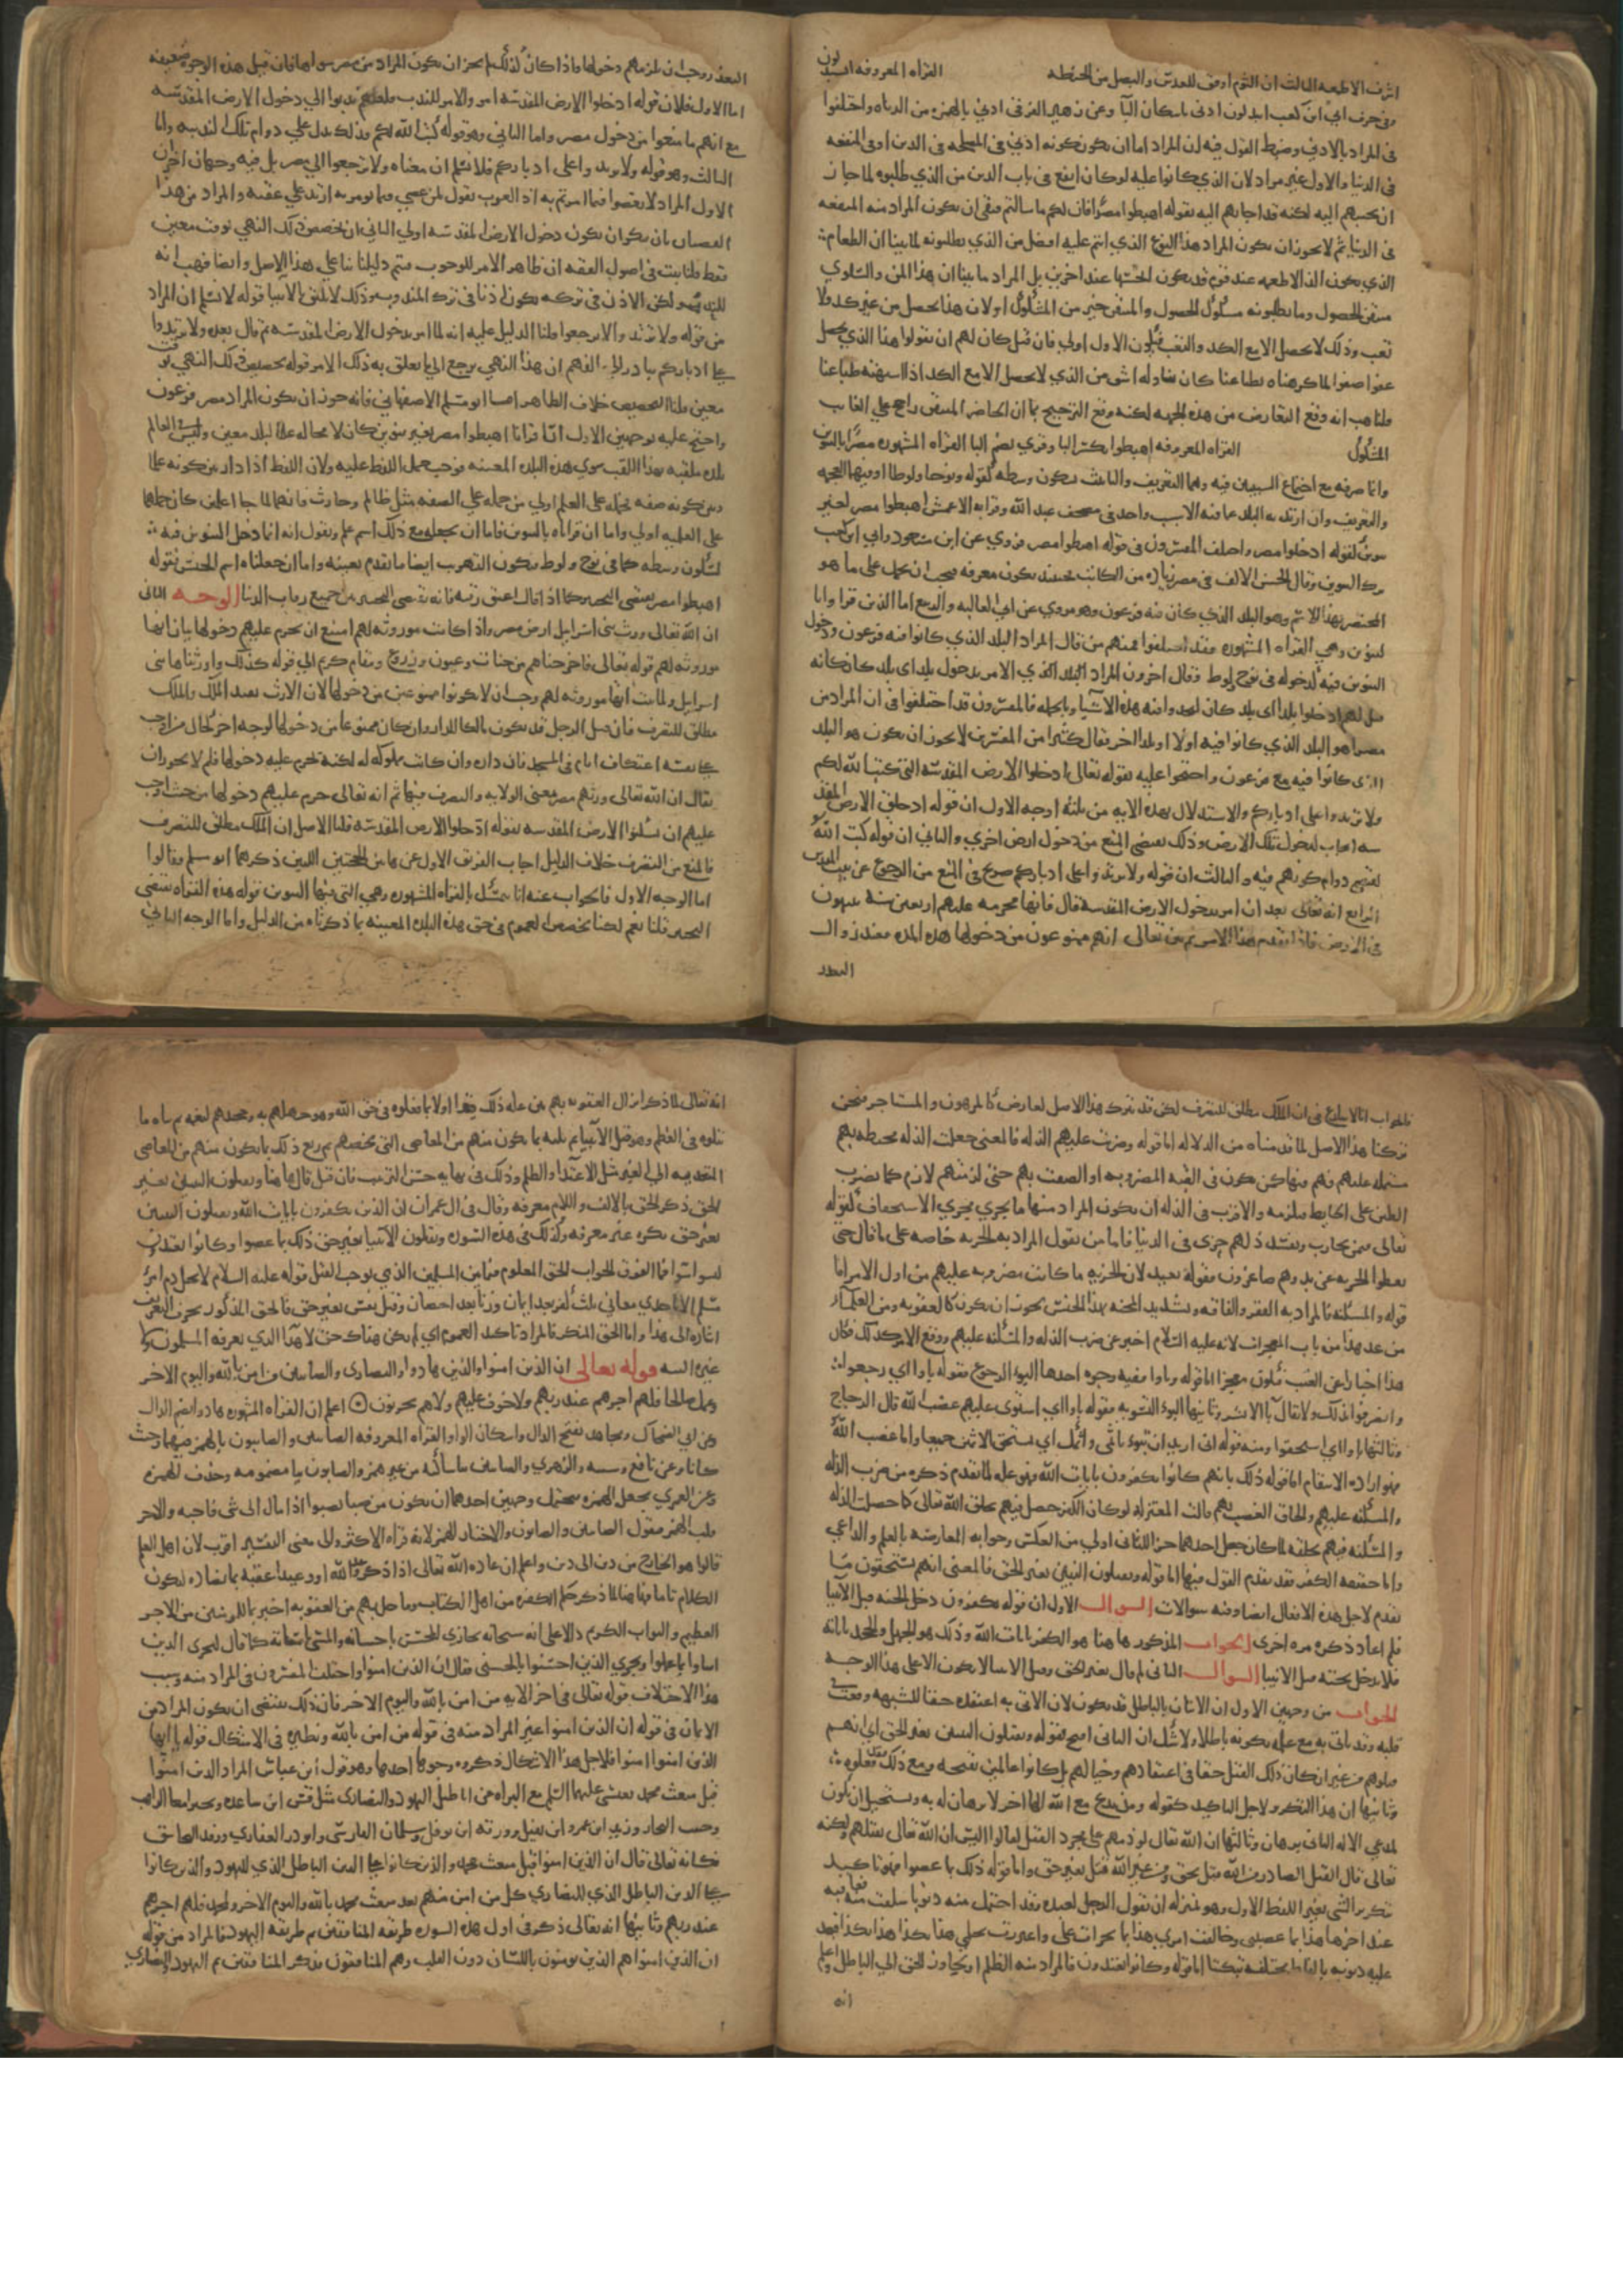 اشرف الاطعمه الثالث ان الثوم اوفق للعدس والبصل من الحنطه القراه المعروفه اتستبدلون
وفى حرف ابي ابن كعب اتبدلون ادنى باسكان البا وعن زهير الفرقبي ادنئ بالهمزه من الدناه واختلفوا
فى المراد بالادنى وضبط القول فيه ان المراد اما ان يكون كونه ادنى فى المصلحه فى الدين او فى المنفعه
فى الدنيا والاول غير مراد لان الذي كانوا عليه لو كان انفع فى باب الدين من الذي طلبوه لما جاز
ان يجيبهم اليه لكنه قد اجابهم اليه بقوله اهبطوا مصرا فان لكم ما سالتم فبقى ان يكون المراد منه المنفعه
فى الدنيا ثم لا يجوز ان يكون المراد هذا النوع الذي انتم عليه افضل من الذي تطلبونه لما بينا ان الطعام
الذي يكون الذ الاطعمه عند قوم قد يكون اخسها عند اخرين بل المراد ما بينا ان هذا المن والسلوي
متيقن الحصول وما تطلبونه مشكوك الحصول والمتيقن خير من المشكوك او لان هذا يحصل من غير كد ولا
تعب وذلك لا يحصل الا مع الكد والتعب فيكون الاول اولي فان قيل كان لهم ان يقولوا هذا الذي يحصل
عفوا صفوا لما كرهناه بطباعنا كان تناوله اشق من الذي لا يحصل الا مع الكد اذا اشتهته طباعنا
قلنا هب انه وقع التعارض من هذه الجهه لكنه وقع الترجيح بما ان الحاضر المتيقن راجح علي الغايب
المشكوك القراه المعروفه اهبطوا بكسر البا وقري بضم البا القراه المشهوره مصرا بالتنوين
وانما صرفه مع اجتماع السببين فيه وهما التعريف والتانيث لسكون وسطه كقوله ونوحا ولوطا وفيهما العجمه
والتعريف وان اريد به البلد فما فيه الا سبب واحد وفى مصحف عبد الله وقرا به الاعمش اهبطوا مصر لغير
تنوين كقوله ادخلوا مصر واختلف المفسرون فى قوله اهبطوا مصر فروي عن ابن مسعود وابي ابن كعب
ترك التنوين وقال الحسن الالف فى مصر زياده من الكاتب فحينئذ يكون معرفه فيجب ان يحمل على ما هو
المختص بهذا الاسم وهو البلد الذي كان فيه فرعون وهو مروي عن ابي العاليه والربيع اما الذين قراوا
بالتنوين وهي القراه المشهوره فقد اختلفوا فمنهم من قال المراد البلد الذي كانوا فيه فرعون ودخول
التنوين فيه كدخوله فى نوح ولوط وقال اخرون المراد البلد الذي الامر بدخول بلد اى بلد كان كانه
قيل لهم ادخلوا بلدا اى بلد كان لتجدوا فيه هذه الاشيا وبالجمله فالمفسرون قد اختلفوا فى ان المراد من
مصر اهو البلد الذي كانوا فيه اولا او بلد اخر فقال كثير من المفسرين لا يجوز ان يكون هو البلد
الذى كانوا فيه مع فرعون واحتجوا عليه بقوله تعالى ادخلوا الارض المقدسه التى كتب الله لكم
ولا ترتدوا على ادباركم والاستدلال بهذه الايه من ثلثه اوجه الاول ان قوله ادخلوا الارض المقد
سه ايجاب لدخول تلك الارض وذلك يقتضى المنع من دخول ارض اخري والثاني ان قوله كتب الله
يقتضى دوام كونهم فيه والثالث ان قوله ولا ترتدوا على ادباركم صريح فى المنع من الرجوع عن بيت المقدس
الرابع انه تعالى بعد ان امر بدخول الارض المقدسه قال فانها محرمه عليهم اربعين سنه يتيهون
فى الارض فاذا تقدم هذا الامر ثم بين تعالى انهم ممنوعون من دخولها هذه المده فعند زوال
العذر
العذر وجب ان يلزمهم دخولها فاذا كان كذلك لم يجز ان يكون المراد من مصر سواها فان قيل هذه الوجوه ضعيفه
اما الاول فلان قوله ادخلوا الارض المقدسه امر والامر للندب فلعلهم ندبوا الي دخول الارض المقدسه
مع انهم ما منعوا من دخول مصر واما الثاني وهو قوله كتب الله لكم فذلك يدل علي دوام تلك الندبيه واما
الثالث وهو قوله ولا ترتدوا على ادباركم فلا نسلم ان معناه ولا ترجعوا الي مصر بل فيه وجهان اخران
الاول المراد لا تعصوا فيما امرتم به اذ العرب تقول لمن عصي فيما يومر به ارتد علي عقبه والمراد من هذا
العصيان ان ينكر ان يكون دخول الارض المقدسه اولي الثاني ان يخصص ذلك النهي بوقت معين
فقط قلنا ثبت فى اصول الفقه ان ظاهر الامر للوجوب فيتم دليلنا بنا علي هذا الاصل وايضا فهب انه
للندب ولكن الاذن فى تركه يكون اذنا فى ترك المندوب وذلك لا يليق بالانبيا قوله لا نسلم ان المراد
من قوله ولا ترتدوا لا ترجعوا قلنا الدليل عليه انه لما امر بدخول الارض المقدسه ثم قال بعده ولا ترتدوا
علي ادباركم تبادر الى الفهم ان هذا النهي يرجع الي ما تعلق به ذلك الامر قوله تخصيص ذلك النهي بوقت
معين قلنا التخصيص خلاف الظاهر اما ابو مسلم الاصفهاني فانه جوز ان يكون المراد مصر فرعون
واحتج عليه بوجهين الاول انا ان قرانا اهبطوا مصر بغير تنوين كان لا محاله علما لبلد معين وليس فى العالم
بلده ملقبه بهذا اللقب سوي هذه البلده المعينه فوجب حمل اللفظ عليه ولان اللفظ اذا دار بين كونه علما
وبين كونه صفه فحمله على العلم اولي من حمله علي الصفه مثل ظالم وحارث فانهما لما جا اعلمين كان حملهما
علي العلميه اولي واما ان قراناه بالتنوين فاما ان نجعله مع ذلك اسم علم ونقول انه انما دخل التنوين فيه
لسكون وسطه كما فى نوح ولوط فيكون التقريب ايضا ما تقدم بعينه واما ان جعلناه اسم الجنس فقوله
اهبطوا مصر يقتضى التخيير كما اذا قال اعتق رقبه فانه يقتضى التخيير بين جميع رقاب الدنيا الوجه الثانى
ان الله تعالى ورث بنى اسرايل ارض مصر واذا كانت موروثه لهم امتنع ان يحرم عليهم دخولها بيان انها
موروثه لهم قوله تعالى فاخرجناهم من جنات وعيون وزروع ومقام كريم الي قوله كذلك واورثناها بنى
اسرايل ولما ثبت انها موروثه لهم وجب ان لا يكونوا ممنوعين من دخولها لان الارث يفيد الملك والملك
مطلق للتصرف فان قيل الرجل قد يكون مالكا للدار وان كان ممنوعا من دخولها لوجه اخر كحال من اوجب
علي نفسه اعتكاف ايام فى المسجد فان داره وان كانت مملوكه له لكنه يحرم عليه دخولها فلم لا يجوز ان
يقال ان الله تعالى ورثهم مصر بمعنى الولايه والتصرف فيها ثم انه تعالى حرم عليهم دخولها من حيث اوجب
عليهم ان يسكنوا الارض المقدسه بقوله ادخلوا الارض المقدسه قلنا الاصل ان الملك مطلق للتصرف
فالمنع من التصرف خلاف الدليل اجاب الفريق الاول عن هاتين الحجتين اللتين ذكرهما ابو مسلم فقالوا
اما الوجه الاول فالجواب عنه انا نتمسك بالقراه المشهوره وهي التى فيها التنوين قوله هذه القراه تقتضى
التخيير قلنا نعم لكنا نخصص العموم فى حق هذه البلده المعينه بما ذكرناه من الدليل واما الوجه الثاني
فالجواب انا لا ننازع فى ان الملك مطلق للتصرف لكن قد يترك هذا الاصل لعارض كالمرهون والمستاجر فنحن
تركنا هذا الاصل لما قدمناه من الدلاله اما قوله وضربت عليهم الذله فالمعنى جعلت الذله محيطه بهم
مشتمله عليهم فهم فيها كمن يكون فى القبه المضروبه او الصقت بهم حتى لزمتهم لازم كما يضرب
الطين على الحايط فيلزمه والاقرب فى الذله ان يكون المراد منها ما يجري مجري الاستخفاف كقوله
تعالى فيمن يحارب ويفسد ذلك لهم خزى فى الدنيا فاما من يقول المراد به الجزيه خاصه على ما قال حتى
يعطوا الجزيه عن يد وهم صاغرون فقوله بعيد لان الجزيه ما كانت مضروبه عليهم من اول الامر اما
قوله والمسكنه فالمراد به الفقر والفاقه وتشديد المحنه فهذا الجنس يجوز ان يكون كالعقوبه ومن العلما
من عد هذا من باب المعجزات لانه عليه السلام اخبر عن ضرب الذله والمسكنه عليهم ووقع الامر كذلك فكان
هذا اخبارا عن الغيب فيكون معجزا اما قوله وباوا ففيه وجوه احدها البوء الرجوع فقوله باوا اي رجعوا
وانصرفوا بذلك ولا يقال با الا بشر وثانيها البوء التسويه فقوله باوا اي استوى عليهم غضب الله قال الزجاج
وثالثها باوا اي استحقوا ومنه قوله انى اريد ان تبوء باثمى واثمك اي تستحق الاثمين جميعا واما غضب الله
فهو اراده الانتقام اما قوله ذلك بانهم كانوا يكفرون بايات الله فهو عله لما تقدم ذكره من ضرب الذله
والمسكنه عليهم والحاق الغضب بهم قالت المعتزله لو كان الكفر حصل فيهم بخلق الله تعالى كما حصلت الذله
والمسكنه فيهم بخلقه لما كان جعل احدهما جزا للثانى اولي من العكس وجوابه المعارضه بالعلم والداعي
واما حقيقه الكفر فقد تقدم القول فيها اما قوله ويقتلون النبيين بغير الحق فالمعنى انهم يستحقون ما
تقدم لاجل هذه الافعال ايضا وفيه سوالات السوال الاول ان قوله يكفرون دخل تحته قتل الانبيا
فلم اعاد ذكره مره اخرى الجواب المذكور هاهنا هو الكفر بايات الله وذلك هو الجهل والجحد باياته
فلا يدخل تحته قتل الانبيا السوال الثانى لم قال بغير الحق وقتل الانبيا لا يكون الا على هذا الوجه
الجواب من وجهين الاول ان الاتيان بالباطل قد يكون لان الاتى به اعتقده حقا لشبهه وقعت فى
قلبه وقد ياتى به مع علمه بكونه باطلا ولا شك ان الثانى اقبح فقوله ويقتلون النبيين بغير الحق اي انهم
قتلوهم من غير ان كان ذلك القتل حقا فى اعتقادهم وخيالهم بل كانوا عالمين بقبحه ومع ذلك فقد فعلوه
وثانيها ان هذا التكرير لاجل التاكيد كقوله ومن يدع مع الله الها اخر لا برهان له به ويستحيل ان يكون
لمدعي الاله الثانى برهان وثالثها ان الله تعالى لو ذمهم علي مجرد القتل لقالوا اليس ان الله تعالى يقتلهم ولكنه
تعالى قال القتل الصادر من الله قتل بحق ومن غير الله قتل بغير حق واما قوله ذلك بما عصوا فهو تاكيد
بتكرير الشى بغير اللفظ الاول وهو بمنزله ان يقول الرجل لعبده وقد احتمل منه ذنوبا سلفت منه فعاقبه
عند اخرها هذا بما عصيتنى وخالفت امري هذا بما تجرات على واغتررت بحلمي هذا بكذا هذا بكذا فيعد
عليه ذنوبه بالفاظ مختلفه تبكيتا اما قوله وكانوا يعتدون فالمراد منه الظلم او تجاوز الحق الي الباطل واعلم
انه
انه تعالى لما ذكر انزال العقوبه بهم بين عله ذلك فبدا اولا بما فعلوه فى حق الله وهو جهلهم به وجحدهم لنعمه ثم ثناه بما
يتلوه فى العظم وهو قتل الانبيا ثم ثلثه بما يكون منهم من المعاصى التى تخصهم ثم ربع ذلك بما يكون منهم من المعاصى
المتعديه الي الغير مثل الاعتدا والظلم وذلك فى نهايه حسن الترتيب فان قيل قال هاهنا ويقتلون النبيين بغير
الحق ذكر الحق بالالف واللام معرفه وقال فى ال عمران ان الذين يكفرون بايات الله ويقتلون النبيين
بغير حق نكره غير معرفه وكذلك فى هذه السوره ويقتلون الانبيا بغير حق ذلك بما عصوا وكانوا يعتدون
ليسوا سواء فما الفرق الجواب الحق المعلوم فيما بين المسلمين الذي يوجب القتل قوله عليه السلام لا يحل دم امرئ
مسلم الا باحدي معاني ثلث كفر بعد ايمان وزنا بعد احصان وقتل نفس بغير حق فالحق المذكور بحرف التعريف
اشاره الى هذا واما الحق المنكر فالمراد تاكيد العموم اي لم يكن هناك حق لا هذا الذي يعرفه المسلمون ولا
غيره البته قوله تعالى ان الذين امنوا والذين هادوا والنصارى والصابيين من امن بالله واليوم الاخر
وعمل صالحا فلهم اجرهم عند ربهم ولا خوف عليهم ولا هم يحزنون اعلم ان القراه المشهوره هادوا بضم الدال
وعن ابي الضحاك ومجاهد بفتح الدال واسكان الواو والقراه المعروفه الصابيين والصابيون بالهمز فيهما حيث
كانا وعن نافع وشيبه والزهري والصابين بيا ساكنه من غير همز والصابون بيا مضمومه وحذف الهمزه
وعن العمري بجعل الهمزه فيحتمل وجهين احدهما ان يكون من صبا يصبوا اذا مال الى شى فاحبه والاخر
قلب الهمز فيقول الصابيين والصابيون والاختيار الهمز لانه قراه الاكثر والى معنى التفسير اقرب لان اهل العلم
قالوا هو الخارج من دين الى دين واعلم ان عاده الله تعالى اذا ذكر وعدا او وعيدا عقبه بما يضاده ليكون
الكلام تاما فهاهنا لما ذكر حكم الكفره من اهل الكتاب وما حل بهم من العقوبه اخبر بما للمومنين من الاجر
العظيم والثواب الكريم دالا على انه سبحانه يجازي المحسن باحسانه والمسئ باساته كما قال ليجزى الذين
اساوا بما عملوا ويجزي الذين احسنوا بالحسنى فقال ان الذين امنوا واختلف المفسرون فى المراد منه وسبب
هذا الاختلاف قوله تعالى فى اخر الايه من امن بالله واليوم الاخر فان ذلك يقتضى ان يكون المراد من
الايمان فى قوله ان الذين امنوا غير المراد منه فى قوله من امن بالله ونظيره فى الاشكال قوله يا ايها
الذين امنوا امنوا فلاجل هذا الاشكال ذكروا وجوها احدها وهو قول ابن عباس المراد الذين امنوا
قبل مبعث محمد بعيسى عليهما السلم مع البراه من اباطيل اليهود والنصارى مثل قس ابن ساعده وبحيرا الراهب
وحبيب النجار وزيد ابن عمرو ابن نفيل وورقه ابن نوفل وسلمان الفارسى وابو ذر الغفاري ووفد النجاشى
فكانه تعالى قال ان الذين امنوا قبل مبعث محمد والذين كانوا علي الدين الباطل الذي لليهود والذين كانوا
علي الدين الباطل الذي للنصاري كل من امن منهم بعد مبعث محمد بالله واليوم الاخر وبمحمد فلهم اجرهم
عند ربهم وثانيها انه تعالى ذكر فى اول هذه السوره طريقه المنافقين ثم طريقه اليهود فالمراد من قوله
ان الذين امنوا هم الذين يومنون باللسان دون القلب وهم المنافقون فذكر المنافقين ثم اليهود والنصاري